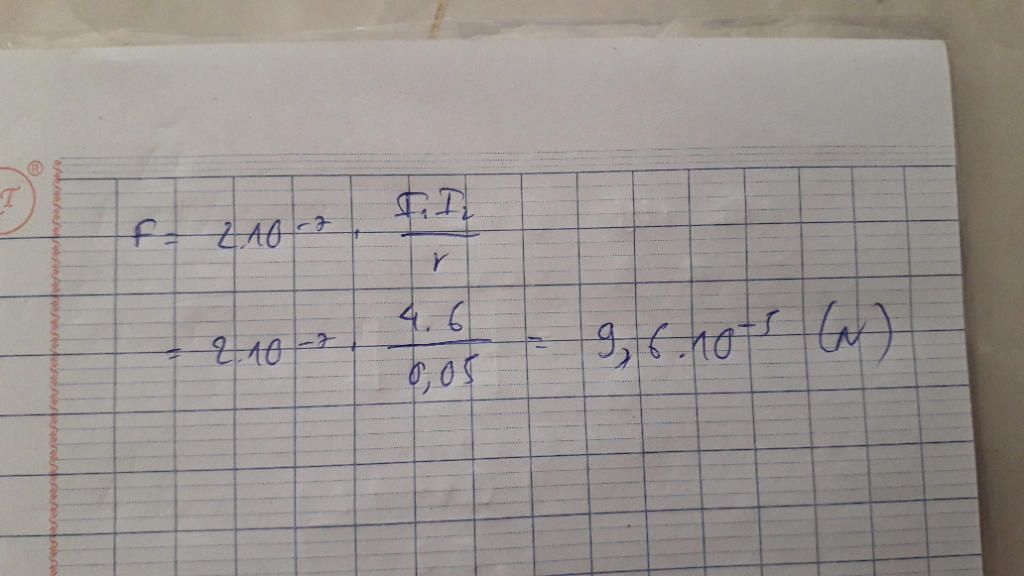 ®
F = 2.10⁻⁷ . I₁.I₂ / r
= 2.10⁻⁷ . 4.6 / 0,05 = 9,6.10⁻⁵ (N)